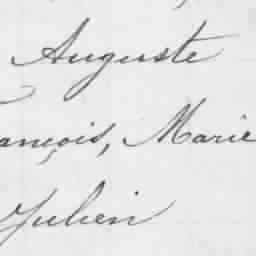 Auguste
ançois, Marie
Julien